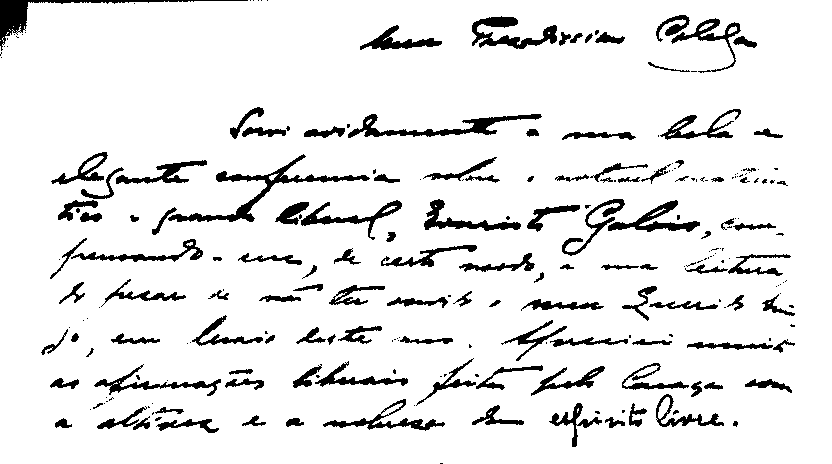 Meu Prezadissimo Colega
Sorvi avidamente a sua bela e
elegante conferencia sobre o notavel matema
tico e grande liberal, Evaristo Galois, com-
pensando-me, de certo modo, a sua leitura
do pesar de não ter ouvido o meu Querido
em Maio deste ano. Apreciei muito
as afirmações liberais feitas pelo Caraça com
a altivez e a nobreza dum espirito livre.